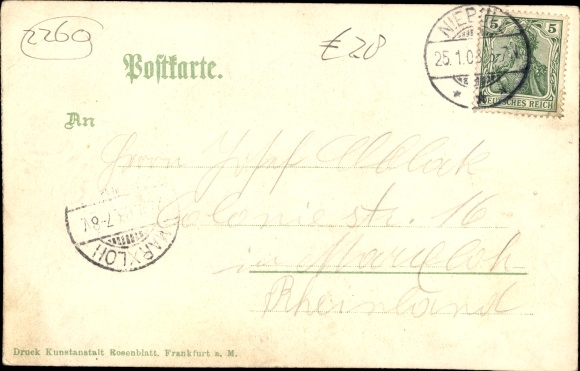 2260
€28
5 5
DEUTSCHES REICH
25.1.0
Postkarte.
An
Herrn Josef
Coloniestr. 16
7-8V
MARXLOH
in Marxloh
Rheinland
Druck Kunstanstalt Rosenblatt, Frankfurt a. M.